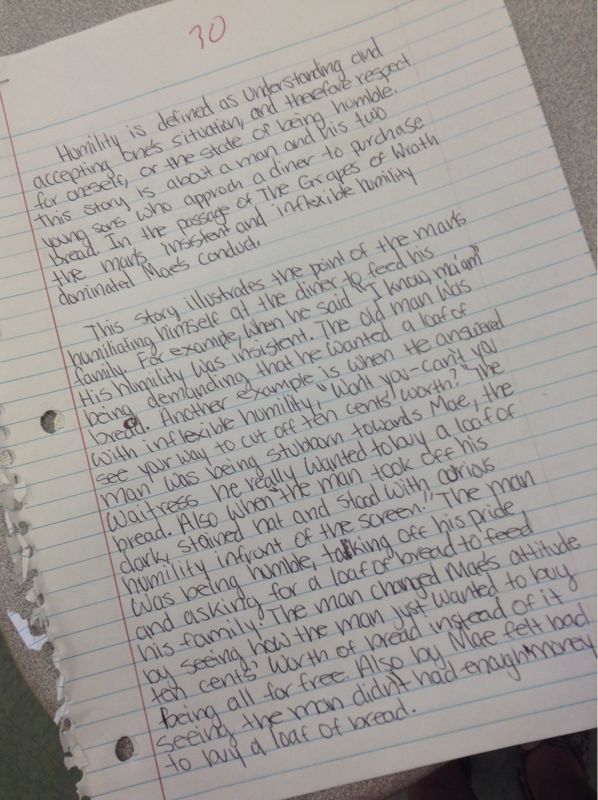 30
Humility is defined as understanding and
accepting one's situation, and therefore respect
for oneself, or the state of being humble.
This story is about a man and his two
young sons who approch a diner to purchase
bread. In the passage of The Grapes of Wrath
the man's insistent and inflexible humility
dominated Mae's conduct.
This story illustrates the point of the man's
humiliating himself at the diner to feed his
family. For example, when he said "I know, ma'am"
His humility was insistent. The old man was
being demanding that he wanted a loaf of
bread. Another example is when He answered
with inflexible humility, "Won't you-can't you
see your way to cut off ten cents' worth?" The
man was being stubborn towards Mae, the
waitress he really wanted to buy a loaf of
bread. Also when "the man took off his
dark, stained hat and stood with curious
humility infront of the screen." The man
was being humble, taking off his pride,
and asking for a loaf of bread to feed
his family. The man changed Mae's attitude
by seeing how the man just wanted to buy
ten cents' worth of bread instead of it
being all for free. Also by Mae felt bad
seeing the man didn't had enough money
to buy a loaf of bread.